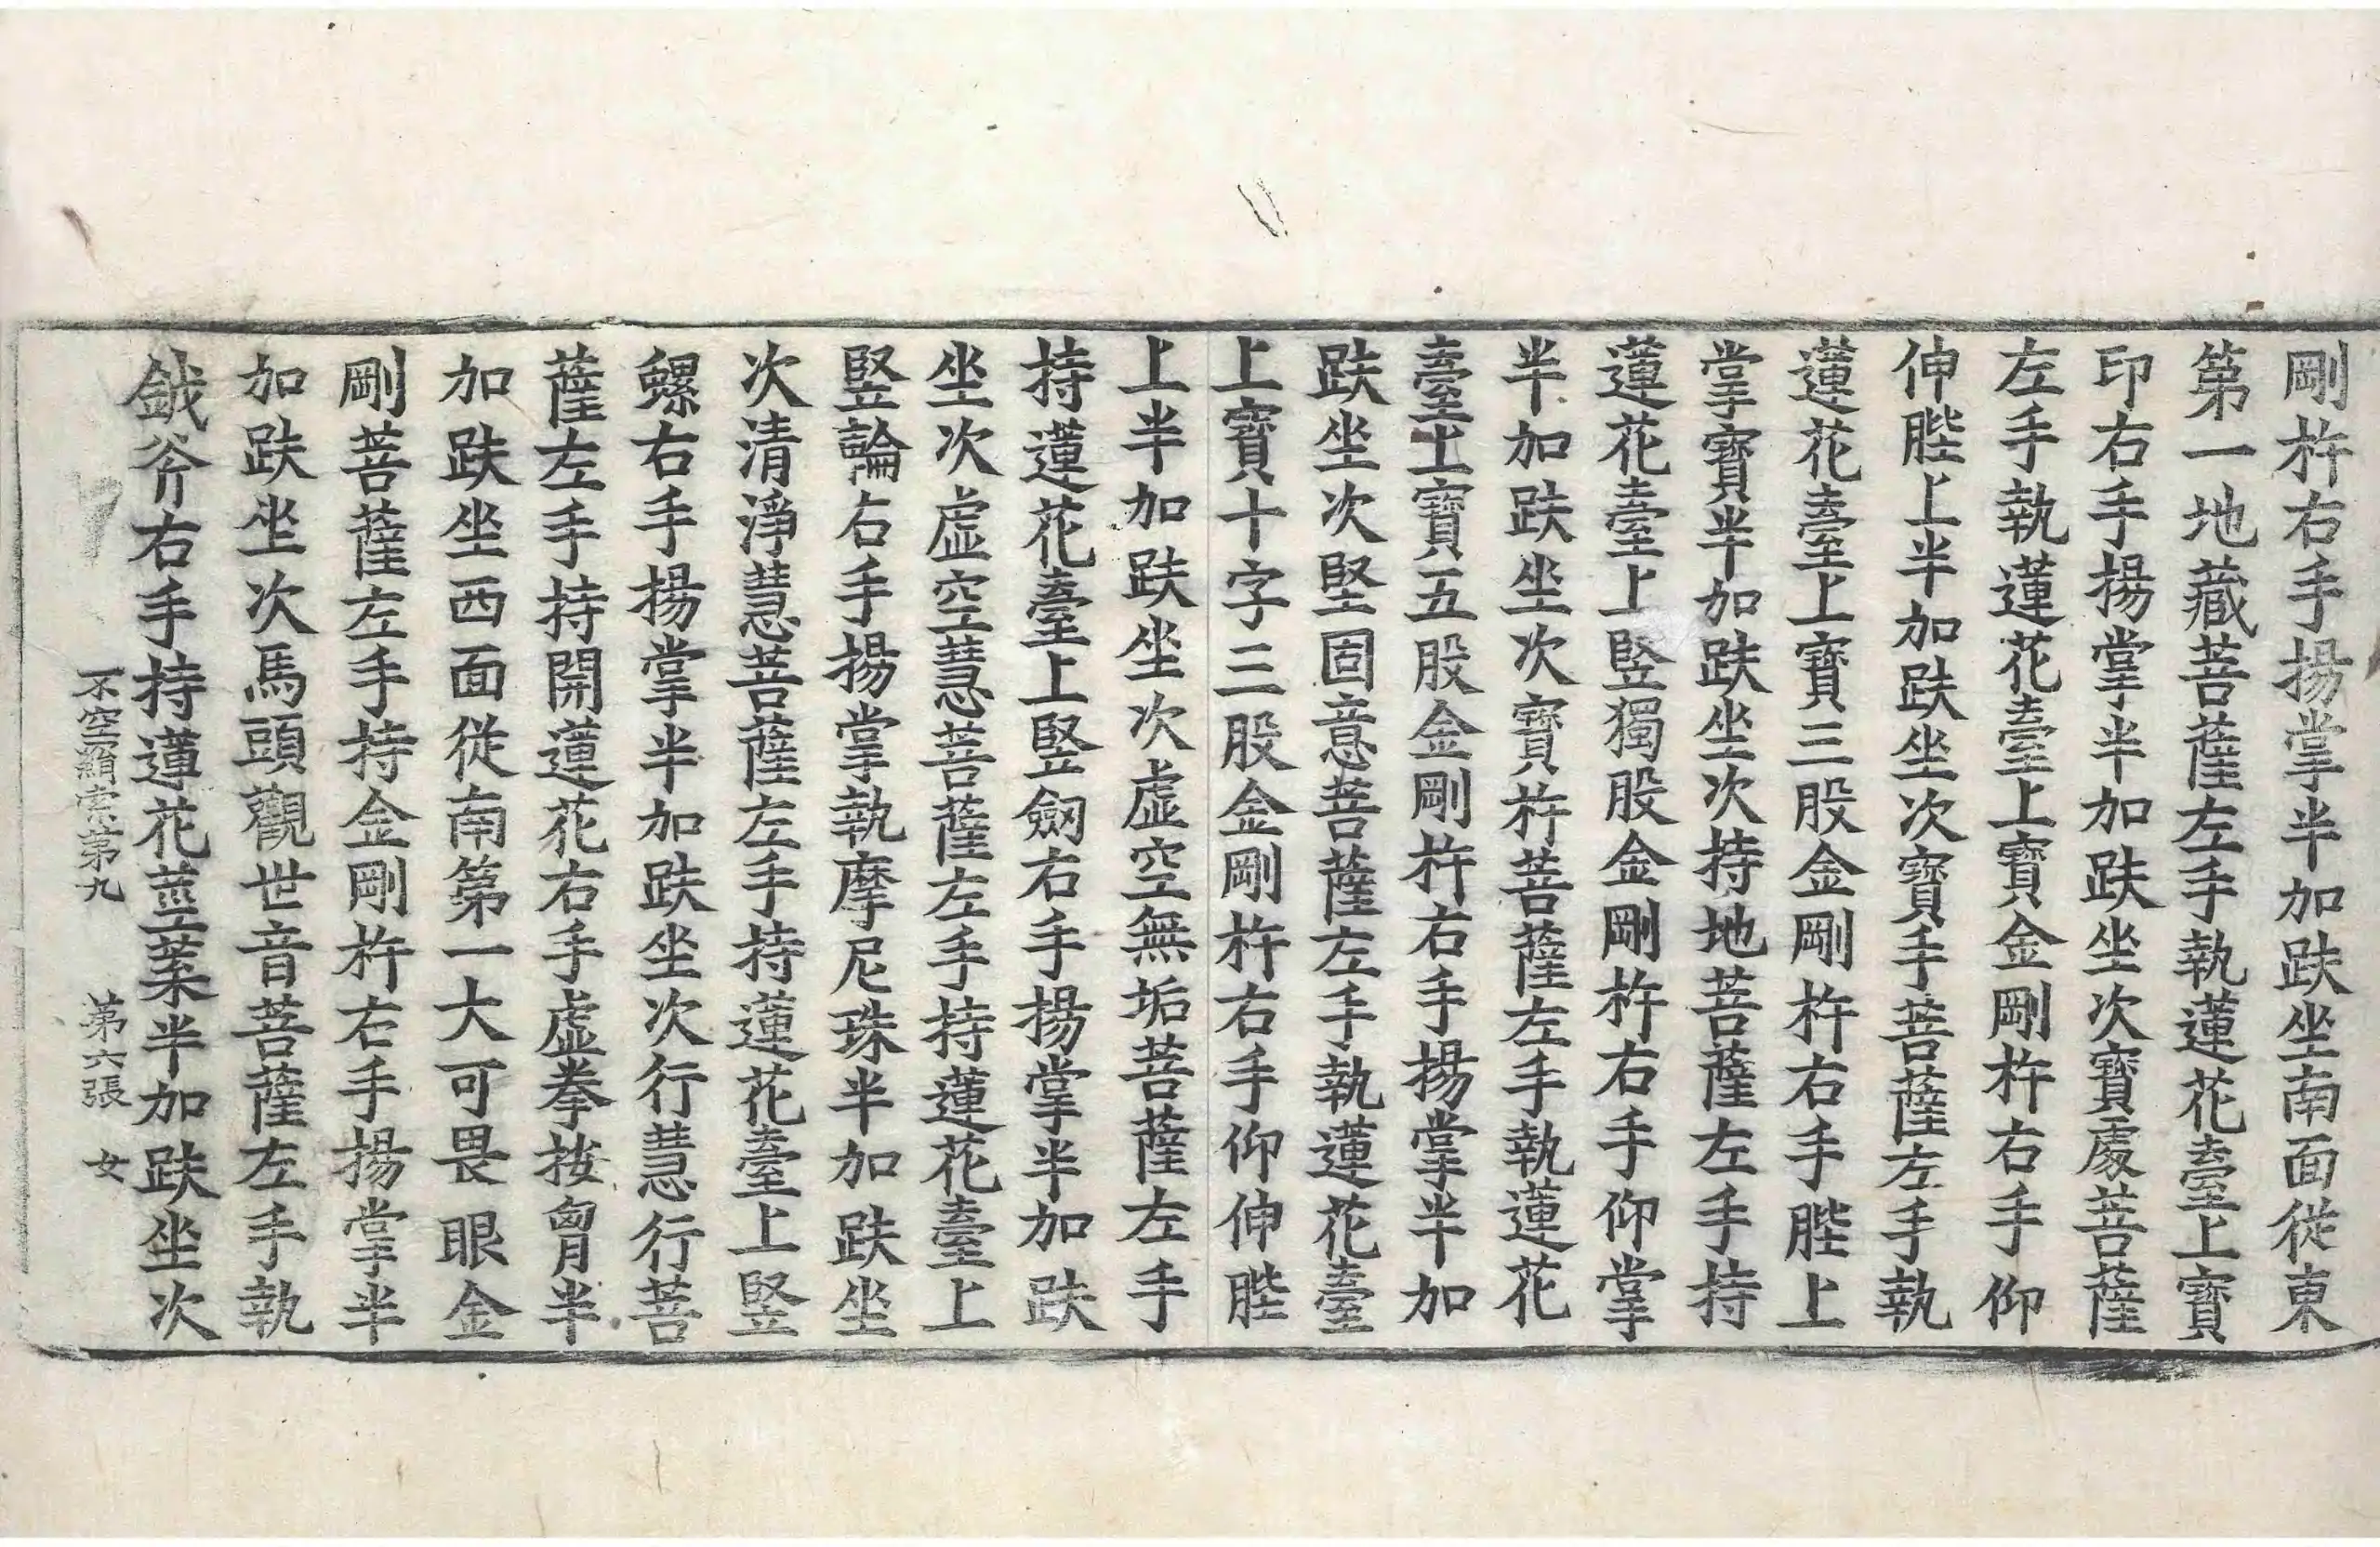 剛杵右手揚掌半加趺坐南面從東
第一地藏菩薩左手執蓮花臺上寶
印右手揚掌半加趺坐次寶處菩薩
左手執蓮花臺上寶金剛杵右手仰
伸䏶上半加趺坐次寶手菩薩左手執
蓮花臺上寶三股金剛杵右手䏶上
掌寶半加趺坐次持地菩薩左手持
蓮花臺上竪獨股金剛杵右手仰掌
半加趺坐次寶杵菩薩左手執蓮花
臺上寶五股金剛杵右手揚掌半加
趺坐次堅固意菩薩左手執蓮花臺
上寶十字三股金剛杵右手仰伸䏶
上半加趺坐次虛空無垢菩薩左手
持蓮花臺上竪劒右手揚掌半加趺
坐次虛空慧菩薩左手持蓮花臺上
竪輪右手揚掌執摩尼珠半加趺坐
次清淨慧菩薩左手持蓮花臺上竪
螺右手揚掌半加趺坐次行慧行菩
薩左手持開蓮花右手虛拳按胷半
加趺坐西面從南第一大可畏眼金
剛菩薩左手持金剛杵右手揚掌半
加趺坐次馬頭觀世音菩薩左手執
鉞斧右手持蓮花莖葉半加趺坐次
不空羂索第九　第六張　女